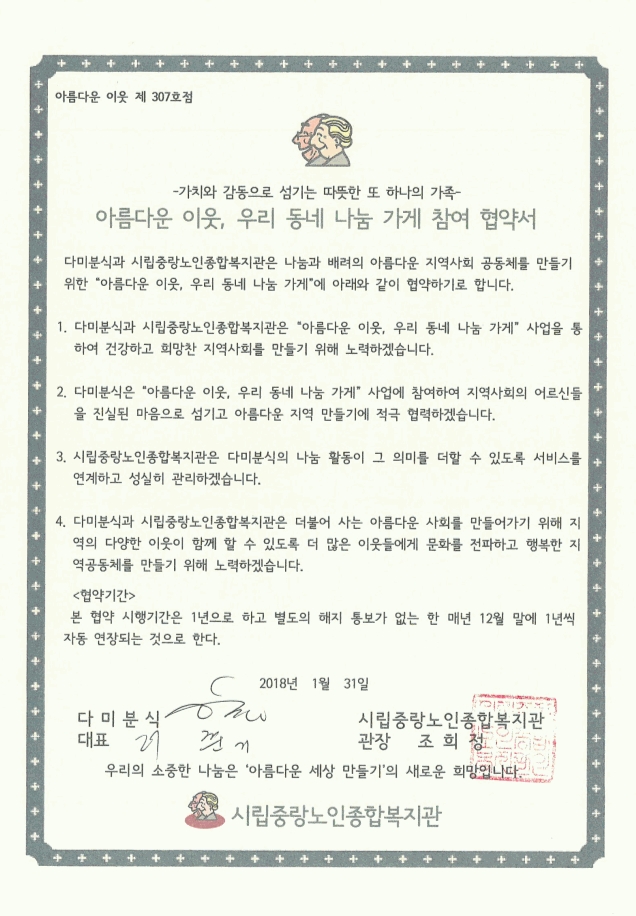 아름다운 이웃 제 307호점
-가치와 감동으로 섬기는 따뜻한 또 하나의 가족-
아름다운 이웃, 우리 동네 나눔 가게 참여 협약서
다미분식과 시립중랑노인종합복지관은 나눔과 배려의 아름다운 지역사회 공동체를 만들기
위한 "아름다운 이웃, 우리 동네 나눔 가게"에 아래와 같이 협약하기로 합니다.
1. 다미분식과 시립중랑노인종합복지관은 "아름다운 이웃, 우리 동네 나눔 가게" 사업을 통
하여 건강하고 희망찬 지역사회를 만들기 위해 노력하겠습니다.
2. 다미분식은 "아름다운 이웃, 우리 동네 나눔 가게" 사업에 참여하여 지역사회의 어르신들
을 진실된 마음으로 섬기고 아름다운 지역 만들기에 적극 협력하겠습니다.
3. 시립중랑노인종합복지관은 다미분식의 나눔 활동이 그 의미를 더할 수 있도록 서비스를
연계하고 성실히 관리하겠습니다.
4. 다미분식과 시립중랑노인종합복지관은 더불어 사는 아름다운 사회를 만들어가기 위해 지
역의 다양한 이웃이 함께 할 수 있도록 더 많은 이웃들에게 문화를 전파하고 행복한 지
역공동체를 만들기 위해 노력하겠습니다.
<협약기간>
본 협약 시행기간은 1년으로 하고 별도의 해지 통보가 없는 한 매년 12월 말에 1년씩
자동 연장되는 것으로 한다.
2018년 1월 31일
다미분식
대표
시립중랑노인종합복지관
관장 조희정
우리의 소중한 나눔은 '아름다운 세상 만들기'의 새로운 희망입니다.
시립중랑노인종합복지관